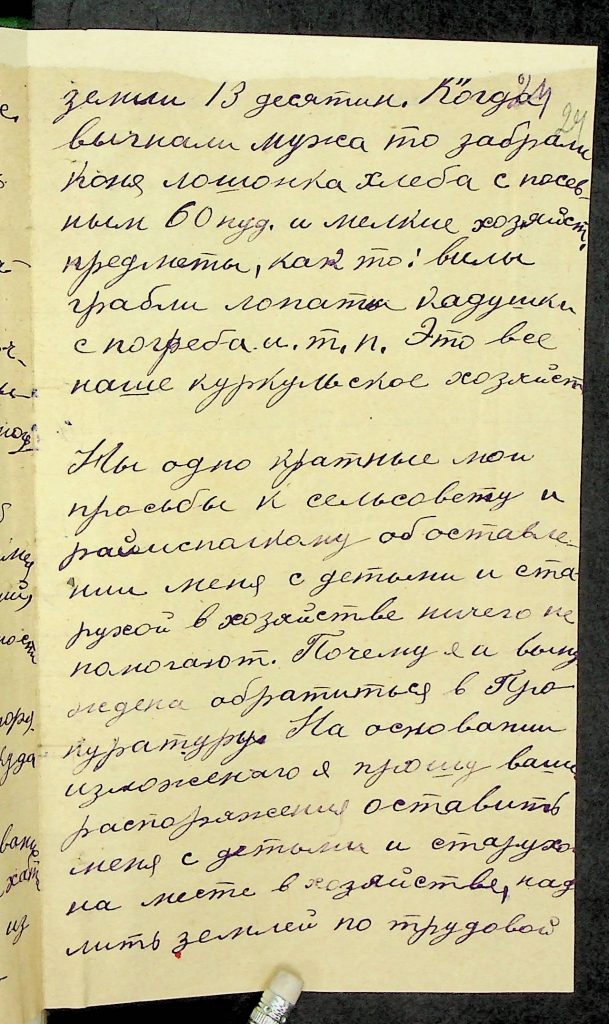 24
24
земли 13 десятин. Когда
вычнали мужа то забрали
коня лошонка хлеба с посев-
ным 60 пуд. и мелкие хозяйст.
предметы, как то: вилы
грабли лопаты кадушки
с погреба и. т. п. Это все
наше куркульское хозяйст
Ны одно кратные мои
просьбы к сельсовету и
райисполкому об оставле-
нии меня с детьми и ста-
рухой в хозяйстве ничего не
помогают. Почему я и выну
ждена обратиться в Про
куратуру. На основании
изложенаго я прошу ваше
распоряжения оставить
меня с детьми и старухо
на месте в хозяйстве, над
лить землей по трудовой